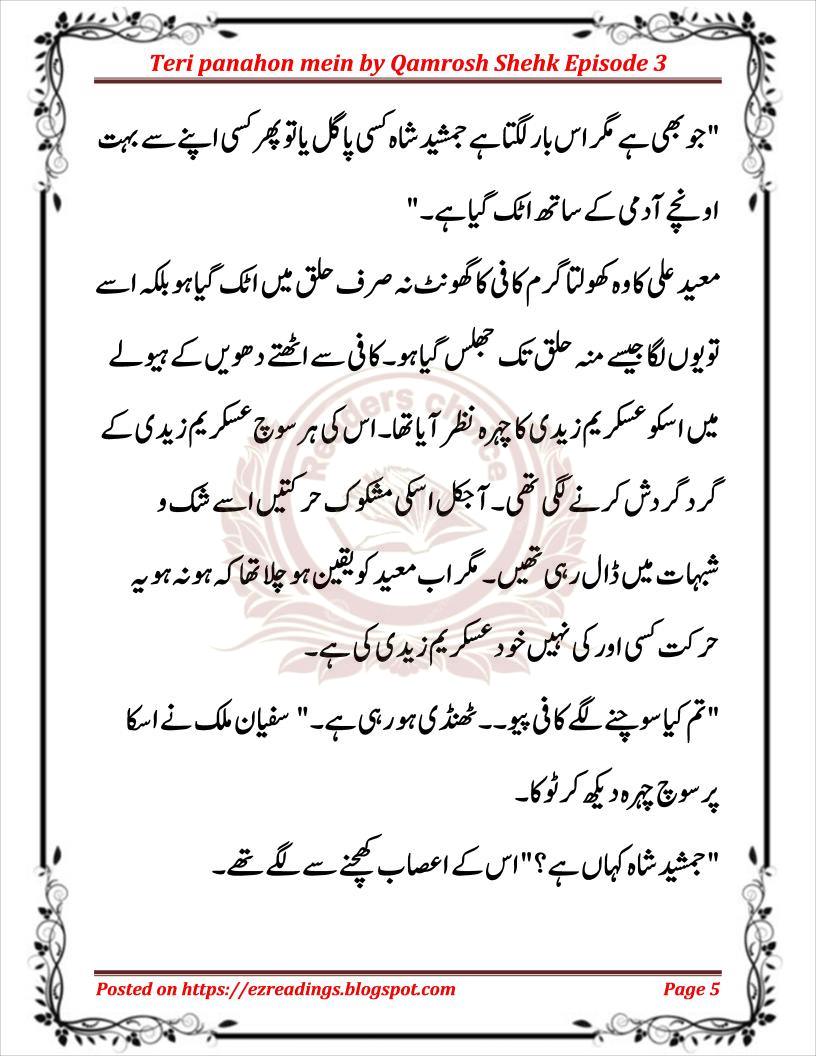 Teri panahon mein by Qamrosh Shehk Episode 3
"جو بھی ہے مگر اس بار لگتا ہے جمشید شاہ کسی پاگل یا تو پھر کسی اپنے سے بہت
اونچے آدمی کے ساتھ اٹک گیا ہے۔"
معید علی کا وہ کھولتا گرم کافی کا گھونٹ نہ صرف حلق میں اٹک گیا ہو بلکہ اسے
تو یوں لگا جیسے منہ حلق تک جھلس گیا ہو۔ کافی سے اٹھتے دھویں کے ہیولے
میں اسکو عسکریم زیدی کا چہرہ نظر آیا تھا۔ اس کی ہر سوچ عسکریم زیدی کے
گرد گردش کرنے لگی تھی۔ آجکل اسکی مشکوک حرکتیں اسے شک و
شبہات میں ڈال رہی تھیں۔ مگر اب معید کو یقین ہو چلا تھا کہ ہو نہ ہو یہ
حرکت کسی اور کی نہیں خود عسکریم زیدی کی ہے۔
"تم کیا سوچنے لگے کافی پیو۔۔ ٹھنڈی ہو رہی ہے۔" سفیان ملک نے اسکا
پر سوچ چہرہ دیکھ کر ٹوکا۔
"جمشید شاہ کہاں ہے؟" اس کے اعصاب کھچنے سے لگے تھے۔
Readers choice
Posted on https://ezreadings.blogspot.com
Page 5